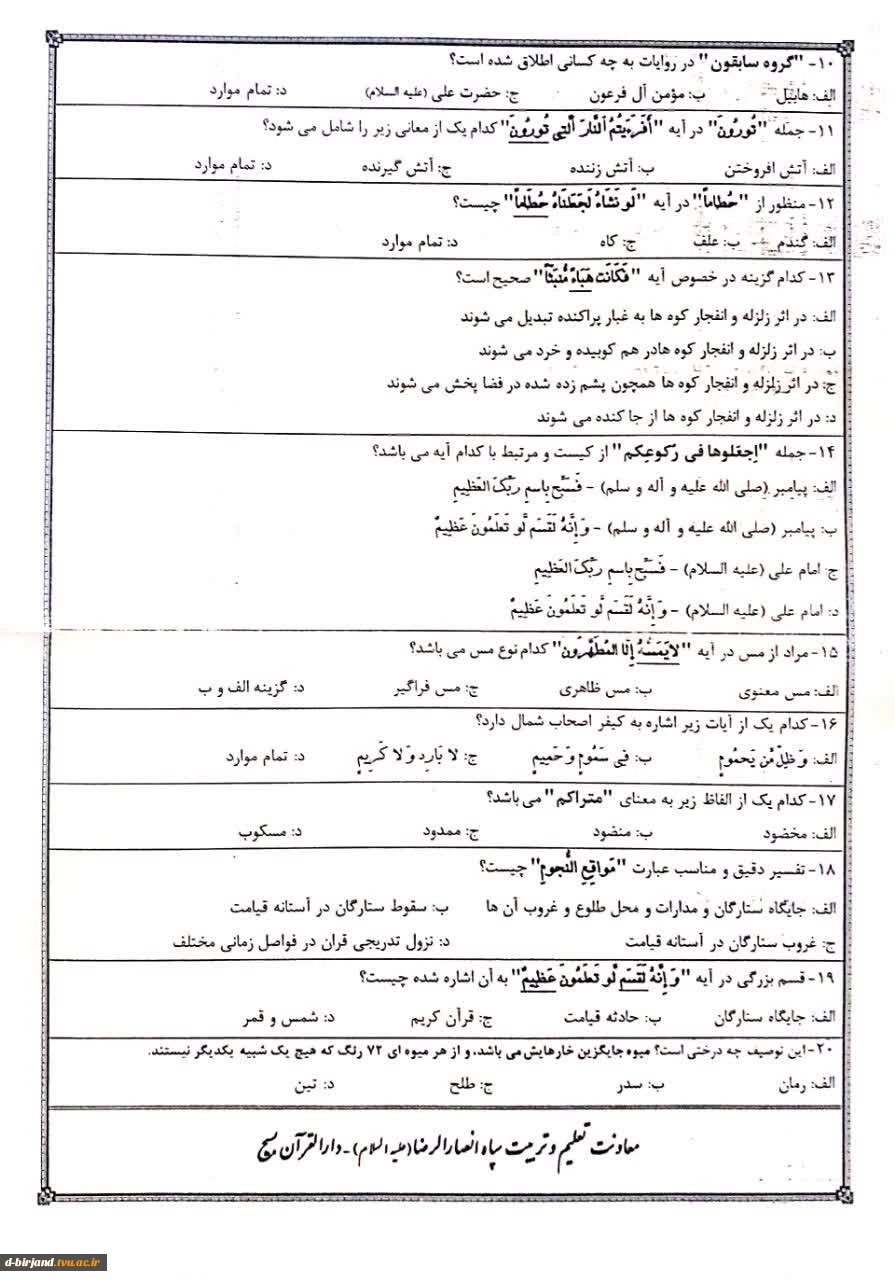 ۱۰- "گروه سابقون" در روایات به چه کسانی اطلاق شده است؟
الف: هابیل ب: مؤمن آل فرعون ج: حضرت علی (علیه السلام) د: تمام موارد
۱۱- جمله "تُورُونَ" در آیه "أَفَرَءَيتُمُ ٱلنَّارَ ٱلَّتِى تُورُونَ" کدام یک از معانی زیر را شامل می شود؟
الف: آتش افروختن ب: آتش زننده ج: آتش گیرنده د: تمام موارد
۱۲- منظور از "حُطاماً" در آیه "لَو نَشَاءُ لَجَعَلنَاهُ حُطَاماً" چیست؟
الف: گندم ب: علف ج: کاه د: تمام موارد
۱۳- کدام گزینه در خصوص آیه "فَكَانَت هَبَاءً مُّنبَثّاً" صحیح است؟
الف: در اثر زلزله و انفجار کوه ها به غبار پراکنده تبدیل می شوند
ب: در اثر زلزله و انفجار کوه هادر هم کوبیده و خرد می شوند
ج: در اثر زلزله و انفجار کوه ها همچون پشم زده شده در فضا پخش می شوند
د: در اثر زلزله و انفجار کوه ها از جا کنده می شوند
۱۴- جمله "اِجعَلوها فی رُکوعِکم" از کیست و مرتبط با کدام آیه می باشد؟
الف: پیامبر (صلی الله علیه و آله و سلم) - فَسَبِّح بِاسمِ رَبِّكَ العَظِيمِ
ب: پیامبر (صلی الله علیه و آله و سلم) - وَ إِنَّهُ لَقَسَم لَّو تَعلَمُونَ عَظِيمٌ
ج: امام علی (علیه السلام) - فَسَبِّح بِاسمِ رَبِّكَ العَظِيمِ
د: امام علی (علیه السلام) - وَ إِنَّهُ لَقَسَم لَّو تَعلَمُونَ عَظِيمٌ
۱۵- مراد از مس در آیه "لا يَمَسُّهُ إِلَّا المُطَهَّرُونَ" کدام نوع مس می باشد؟
الف: مس معنوی ب: مس ظاهری ج: مس فراگیر د: گزینه الف و ب
۱۶- کدام یک از آیات زیر اشاره به کیفر اصحاب شمال دارد؟
الف: وَ ظِلّ مِّن يَحمُومٍ ب: فِى سَمُومٍ وَ حَمِيمٍ ج: لا بَارِدٍ وَ لا كَرِيمٍ د: تمام موارد
۱۷- کدام یک از الفاظ زیر به معنای "متراکم" می باشد؟
الف: مخضود ب: منضود ج: ممدود د: مسکوب
۱۸- تفسیر دقیق و مناسب عبارت "مَواقِعِ النُّجومِ" چیست؟
الف: جایگاه ستارگان و مدارات و محل طلوع و غروب آن ها ب: سقوط ستارگان در آستانه قیامت
ج: غروب ستارگان در آستانه قیامت د: نزول تدریجی قران در فواصل زمانی مختلف
۱۹- قسم بزرگی در آیه "وَ إِنَّهُ لَقَسَم لَّو تَعلَمُونَ عَظِيمٌ" به آن اشاره شده چیست؟
الف: جایگاه ستارگان ب: حادثه قیامت ج: قرآن کریم د: شمس و قمر
۲۰- این توصیف چه درختی است؟ میوه جایگزین خارهایش می باشد، و از هر میوه ای ۷۲ رنگ که هیچ یک شبیه یکدیگر نیستند.
الف: رمان ب: سدر ج: طلح د: تین
معاونت تعلیم و تربیت سپاه انصارالرضا(علیه السلام)-دارالقرآن بسیج
d-birjand.tvu.ac.ir